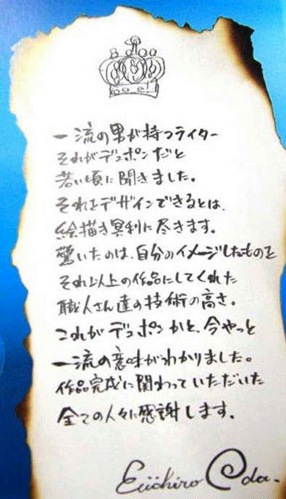 一流の男が持つライター
それがデュポンだと
若い頃に聞きました。
それをデザインできるとは、
絵描き冥利に尽きます。
驚いたのは、自分のイメージしたものを
それ以上の作品にしてくれた
職人さん達の技術の高さ。
これがデュポンかと、今やっと
一流の意味がわかりました。
作品完成に関わっていただいた
全ての人々に感謝します。
Eiichiro Oda.